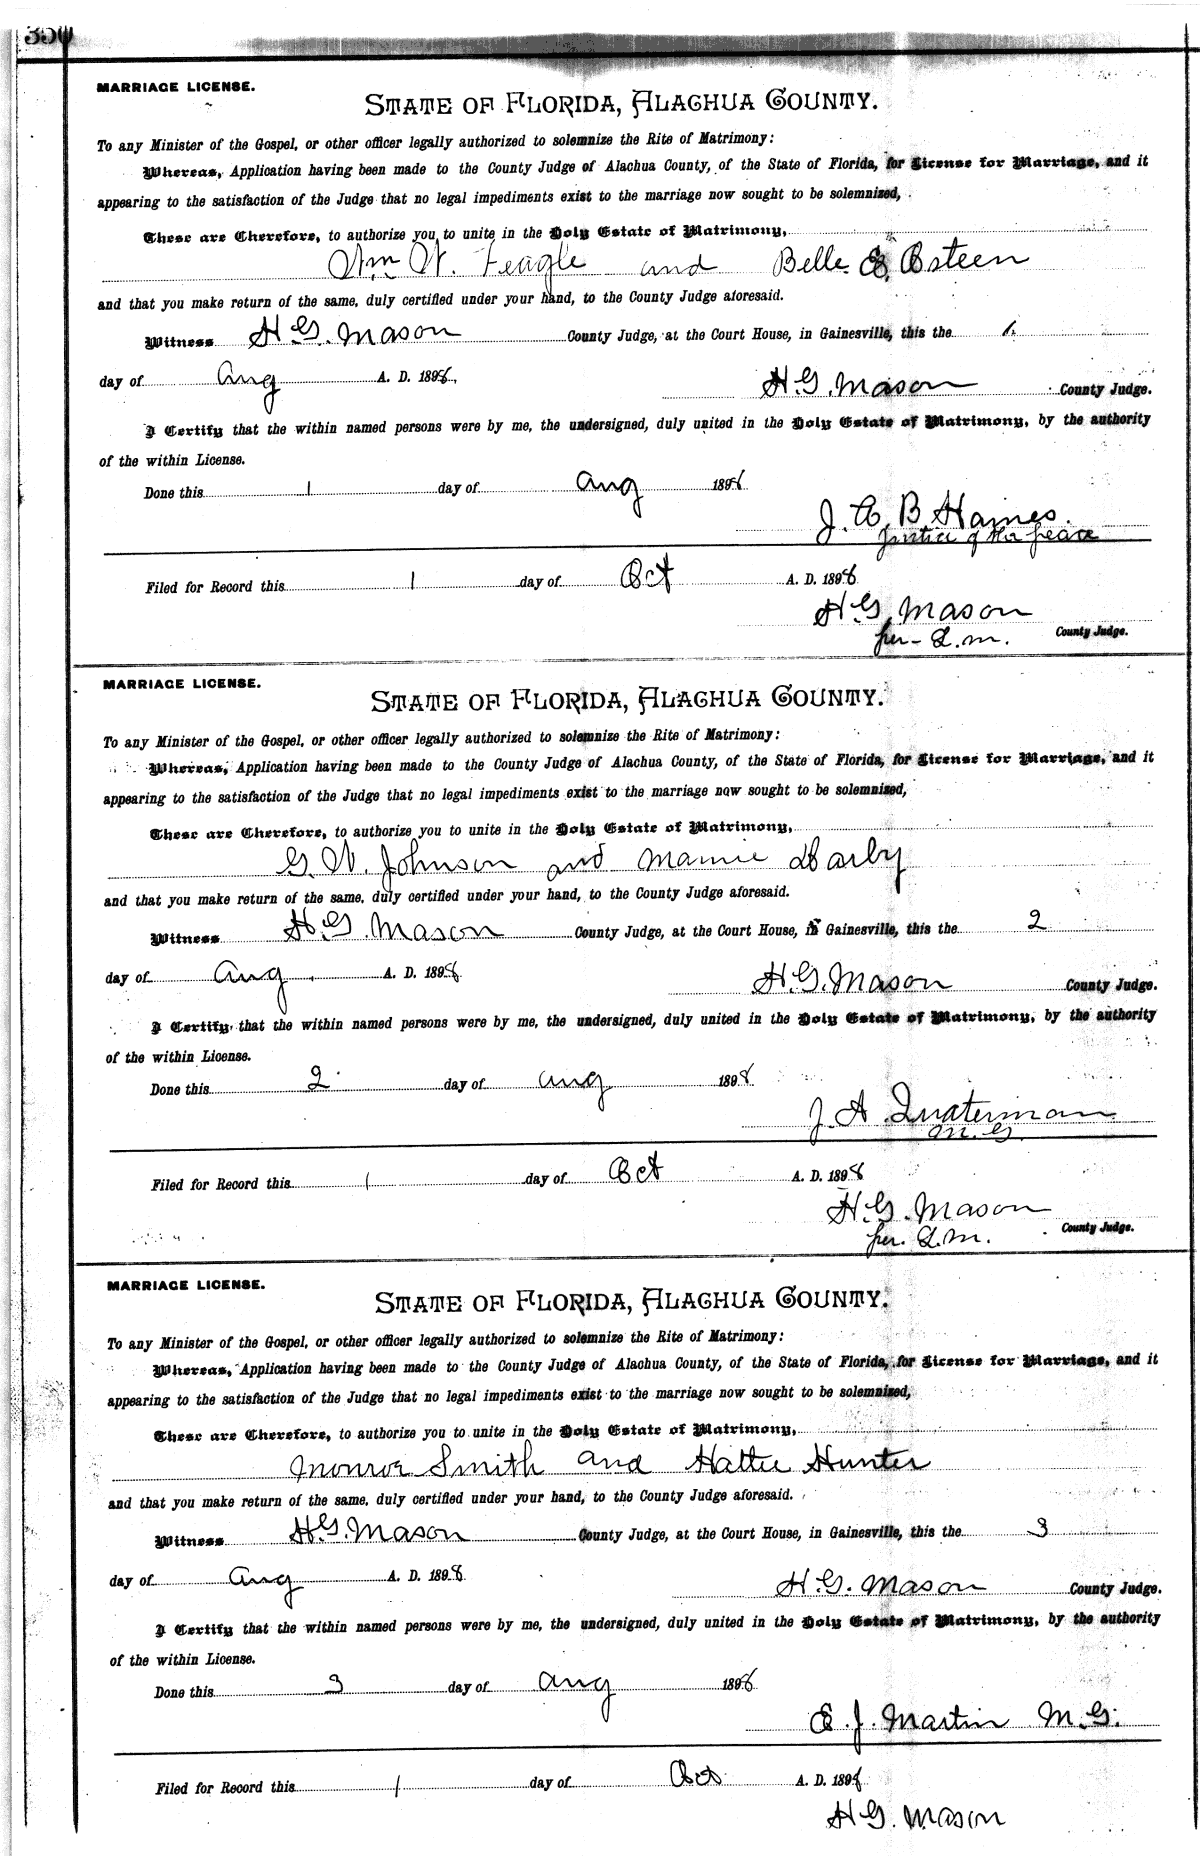 350
MARRIAGE LICENSE.
STATE OF FLORIDA, ALACHUA COUNTY.
To any Minister of the Gospel, or other officer legally authorized to solemnize the Rite of Matrimony:
Whereas, Application having been made to the County Judge of Alachua County, of the State of Florida, for License for Marriage, and it
appearing to the satisfaction of the Judge that no legal impediments exist to the marriage now sought to be solemnized,
These are Cherefore, to authorize you to unite in the Holy Estate of Matrimony,
Wm W. Feagle and Belle E Osteen
and that you make return of the same, duly certified under your hand, to the County Judge aforesaid.
Witness H. G. Mason County Judge, at the Court House, in Gainesville, this the 1.
day of Aug A. D. 1898, H. G. Mason County Judge.
I Certify that the within named persons were by me, the undersigned, duly united in the Holy Estate of Matrimony, by the authority
of the within License.
Done this 1 day of Aug 1898
J. A. B. Haines.
Justice of the peace
Filed for Record this 1 day of Oct A. D. 1898
H. G. Mason
per- L. M. County Judge.
MARRIAGE LICENSE.
STATE OF FLORIDA, ALACHUA COUNTY.
To any Minister of the Gospel, or other officer legally authorized to solemnize the Rite of Matrimony:
Whereas, Application having been made to the County Judge of Alachua County, of the State of Florida, for License for Marriage, and it
appearing to the satisfaction of the Judge that no legal impediments exist to the marriage now sought to be solemnized,
These are Cherefore, to authorize you to unite in the Holy Estate of Matrimony,
G. W. Johnson and Mamie Darby
and that you make return of the same, duly certified under your hand, to the County Judge aforesaid.
Witness H. G. Mason County Judge, at the Court House, in Gainesville, this the 2
day of Aug. A. D. 1898 H. G. Mason County Judge.
I Certify that the within named persons were by me, the undersigned, duly united in the Holy Estate of Matrimony, by the authority
of the within License.
Done this 2 day of Aug 1898
J. A. Quaterman
M. G.
Filed for Record this 1 day of Oct A. D. 1898
H. G. Mason
per. L. M. County Judge.
MARRIAGE LICENSE.
STATE OF FLORIDA, ALACHUA COUNTY.
To any Minister of the Gospel, or other officer legally authorized to solemnize the Rite of Matrimony:
Whereas, Application having been made to the County Judge of Alachua County, of the State of Florida, for License for Marriage, and it
appearing to the satisfaction of the Judge that no legal impediments exist to the marriage now sought to be solemnized,
These are Cherefore, to authorize you to unite in the Holy Estate of Matrimony,
Monroe Smith and Hattie Hunter
and that you make return of the same, duly certified under your hand, to the County Judge aforesaid.
Witness H. G. Mason County Judge, at the Court House, in Gainesville, this the 3
day of Aug A. D. 1898 H. G. Mason County Judge.
I Certify that the within named persons were by me, the undersigned, duly united in the Holy Estate of Matrimony, by the authority
of the within License.
Done this 3 day of Aug 1898
E. J. Martin M. G.
Filed for Record this 1 day of Oct A. D. 1898
H. G. Mason